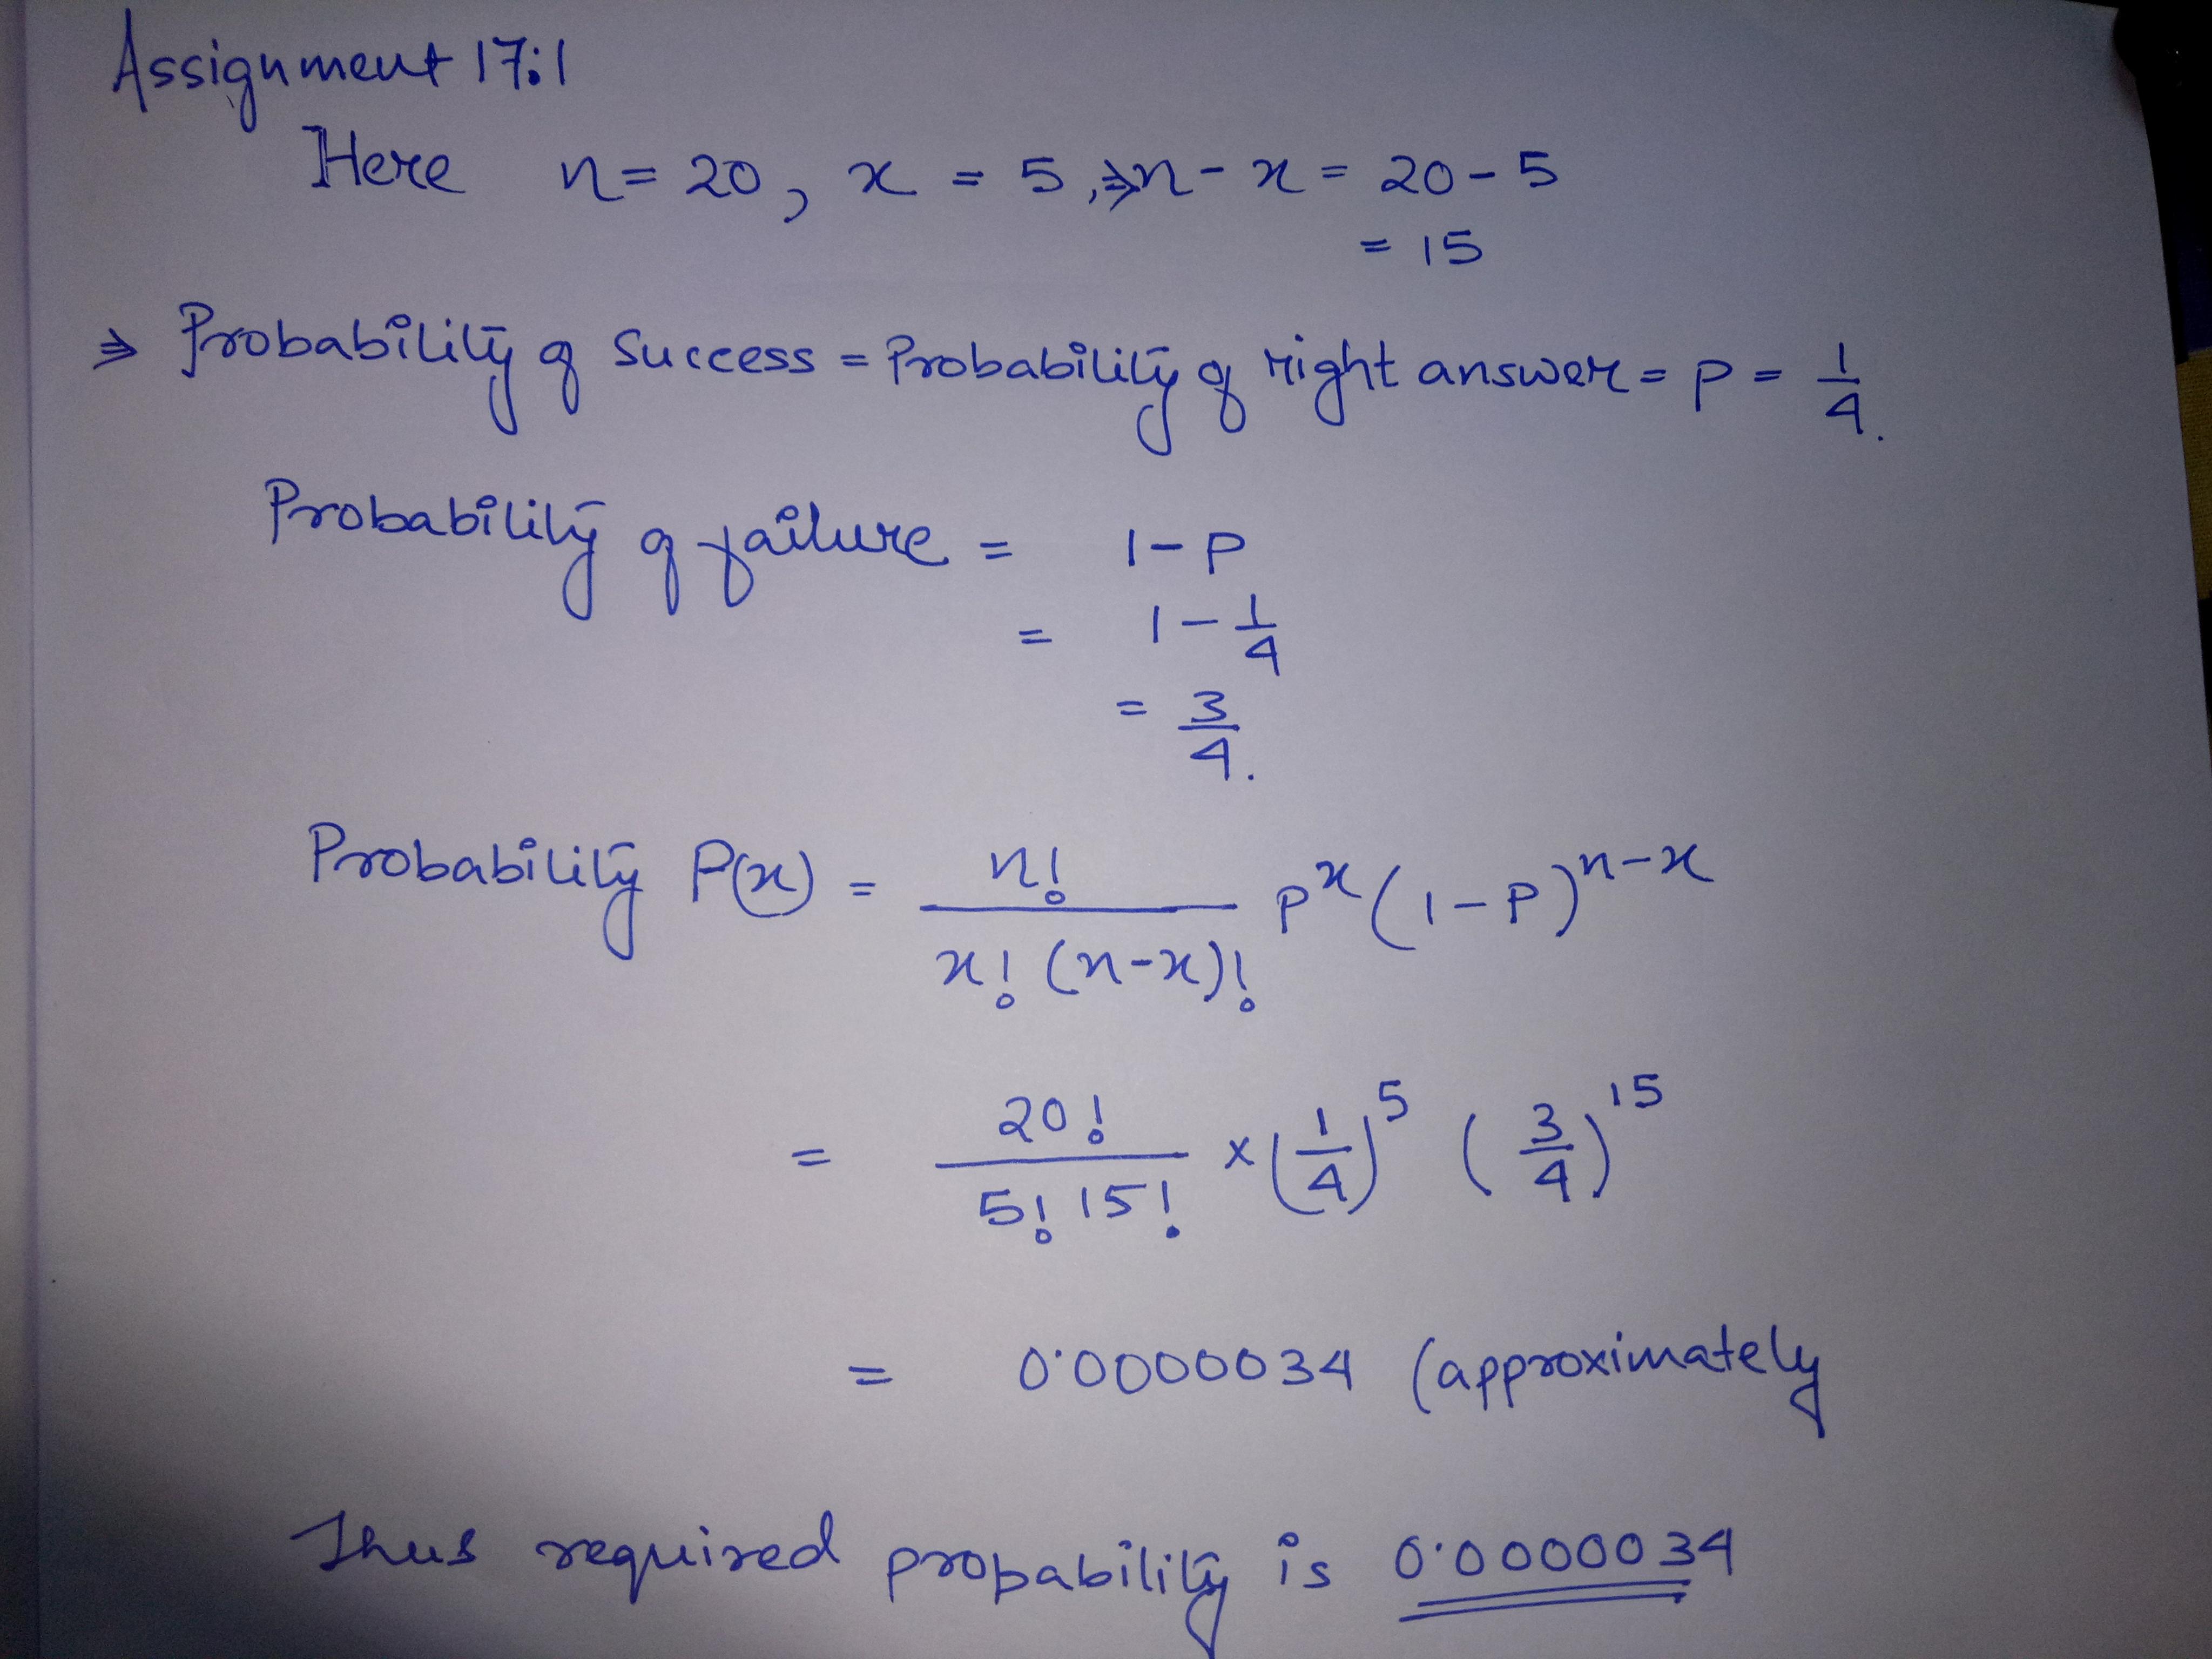 Assignment 17:1
Here n = 20, x = 5, ⇒ n - x = 20 - 5
= 15
⇒ Probability of Success = Probability of right answer = p = 1/4.
Probability of failure = 1 - p
= 1 - 1/4
= 3/4.
Probability P(x) = n!/(x! (n-x)!) p^x (1-p)^(n-x)
= 20!/(5! 15!) × (1/4)^5 (3/4)^15
= 0·0000034 (approximately
Thus required probability is 0·0000034